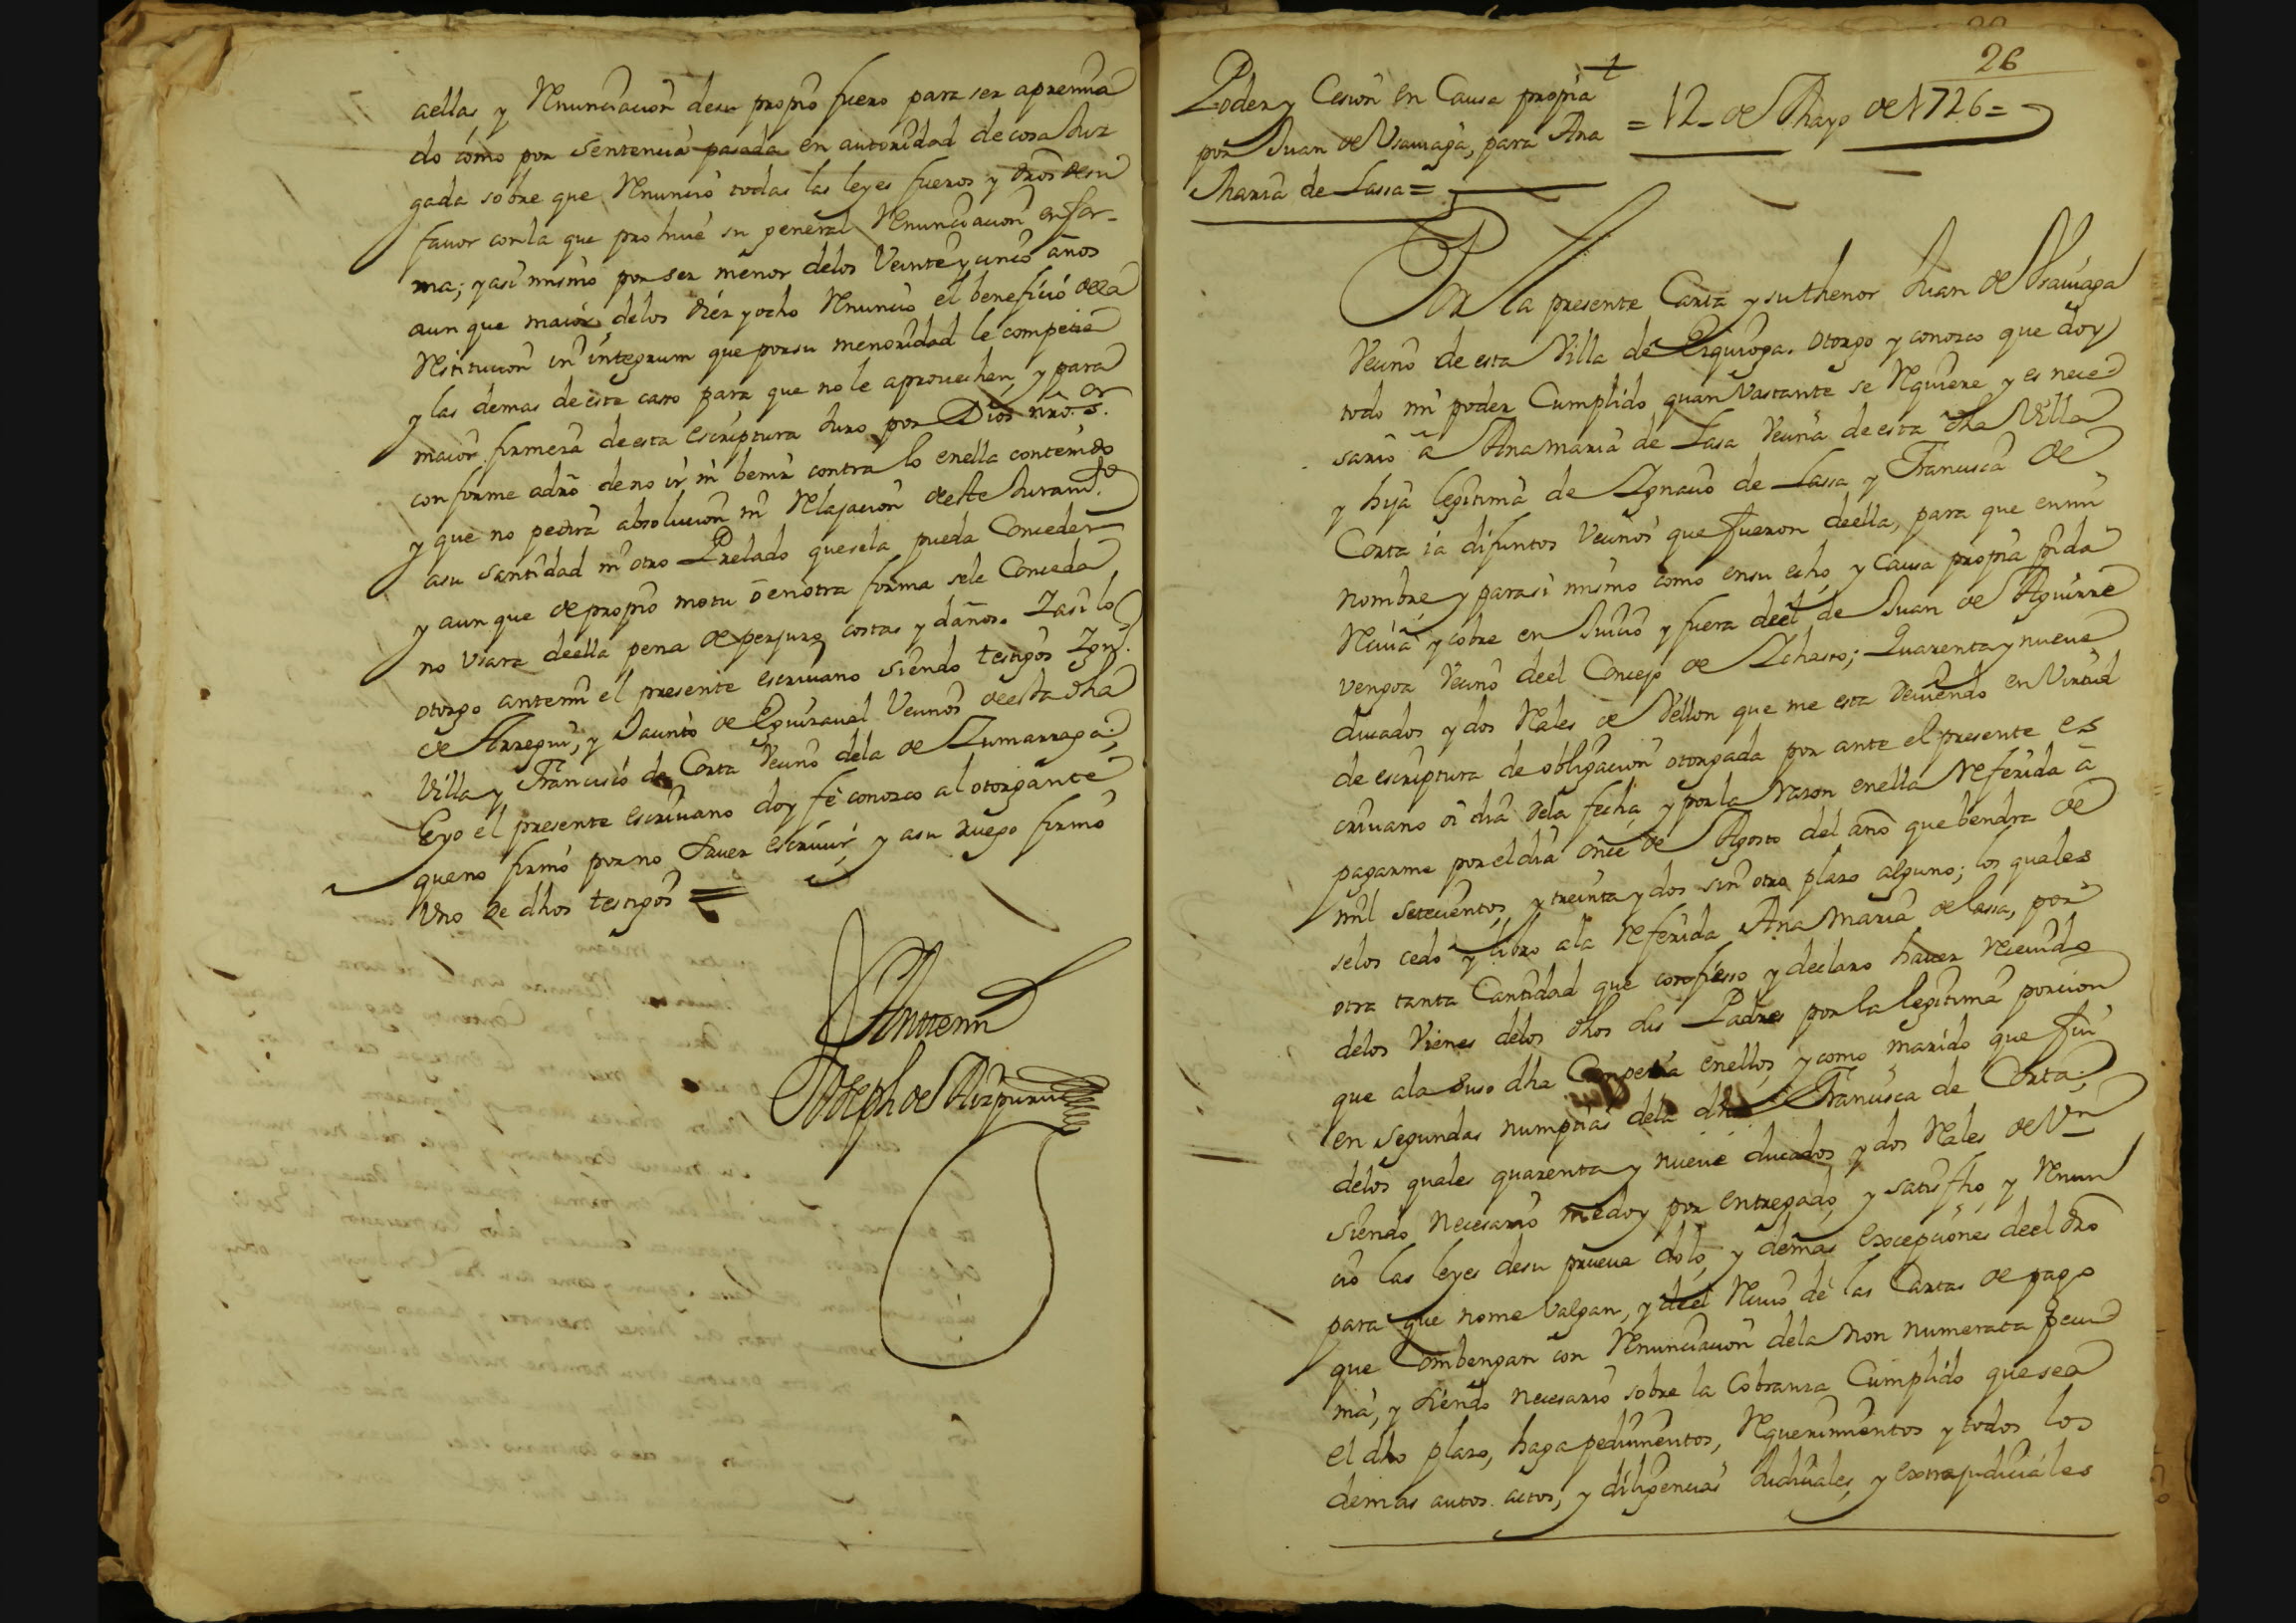 aellas y Renunciacion desu propio fuero para ser apremia
do como por sentencia pasada en autoridad de cosa Juz
gada sobre que Renuncio todas las leyes fueros y dros desu
fauor conla que prohiue su general Renunciacion enfor-
ma; y asi mismo por ser menor delos Veinte y cinco años
aun que maior delos diez y ocho Renuncio el beneficio dela
Restitucion in integrum que porsu menoridad le competia
y las demas de este caso para que no le aprouechen, y para
maior firmeza de esta escriptura Juro por Dios nro. s.or
conforme adro de no ir ni benir contra lo enella contenido
y que no pedira absolucion ni Relajacion deste Juram.to
asu santidad ni otro Prelado quesela pueda Conceder
y aun que de propio motu o en otra forma sele Conceda
no Usara deella pena de perjuro, costas y daños. Y asi lo
otorgo antemi el presente escriuano siendo testigos Ign.o
de Arregui, y Jacinto de Eguizaual Vecinos de esta dha
Villa y Francisco de Corta Vecino dela de Zumarraga;
E yo el presente escriuano doy fe conozco al otorgante
que no firmo por no sauer escriuir, y asu ruego firmo
Uno de dhos testigos =
Antemi
Joseph de Aizpuru
26
Poder y Cesion en Causa propia
por Juan de Usauiaga, para Ana
Maria de Lassa =
= 12 - de Mayo de 1726 =
Por la presente Carta y su thenor Juan de Usauiaga
Vecino de esta Villa de Ezquioga. otorgo y conozco que doy
todo mi poder Cumplido quan Vastante se Requiere y es nece
sario a Ana Maria de Lasa Vecina de esta dha Villa
y hija legitima de Ignacio de Lassa y Francisca de
Corta ia difuntos Vecinos que fueron deella, para que en mi
nombre, y parasi mismo como en su echo, y Causa propia pida
Reciua y cobre en Juicio y fuera deel de Juan de Aguirre
vengoa Vecino deel Concejo de Ichaso; Quarenta y nueue
ducados y dos Rales de Vellon que me esta deuiendo en Virtud
de escriptura de obligacion otorgada por ante el presente es
criuano oi dia dela fecha, y por la razon enella Referida a
pagarme por el dia once de Agosto del año que bendra de
mil setecientos, y treinta y dos sin otro plazo alguno; los quales
selos cedo y libro ala Referida Ana Maria de Lassa, por
otra tanta Cantidad que confiesso y declaro hauer Reciuido
delos Vienes delos dhos sus Padres por la legitima porcion
que ala suso dha Competia enellos, y como marido que fui
en segundas numpcias dela dha Francisca de Corta;
delos quales quarenta y nueue ducados y dos Rales de V.n
siendo necesario me doy por entregado, y satisfho, y Renun
cio las leyes desu prueua dolo, y demas excepciones deel dro
para que nome Valgan, y deel Reciuo de las Cartas de pago
que Combengan con Renunciacion dela non numerata pecu
nia, y siendo necesario sobre la Cobranza Cumplido que sea
el dho plazo, haga pedimientos, Requerimientos y todos los
demas autos. actos, y diligencias Judiciales, y extrajudiciales